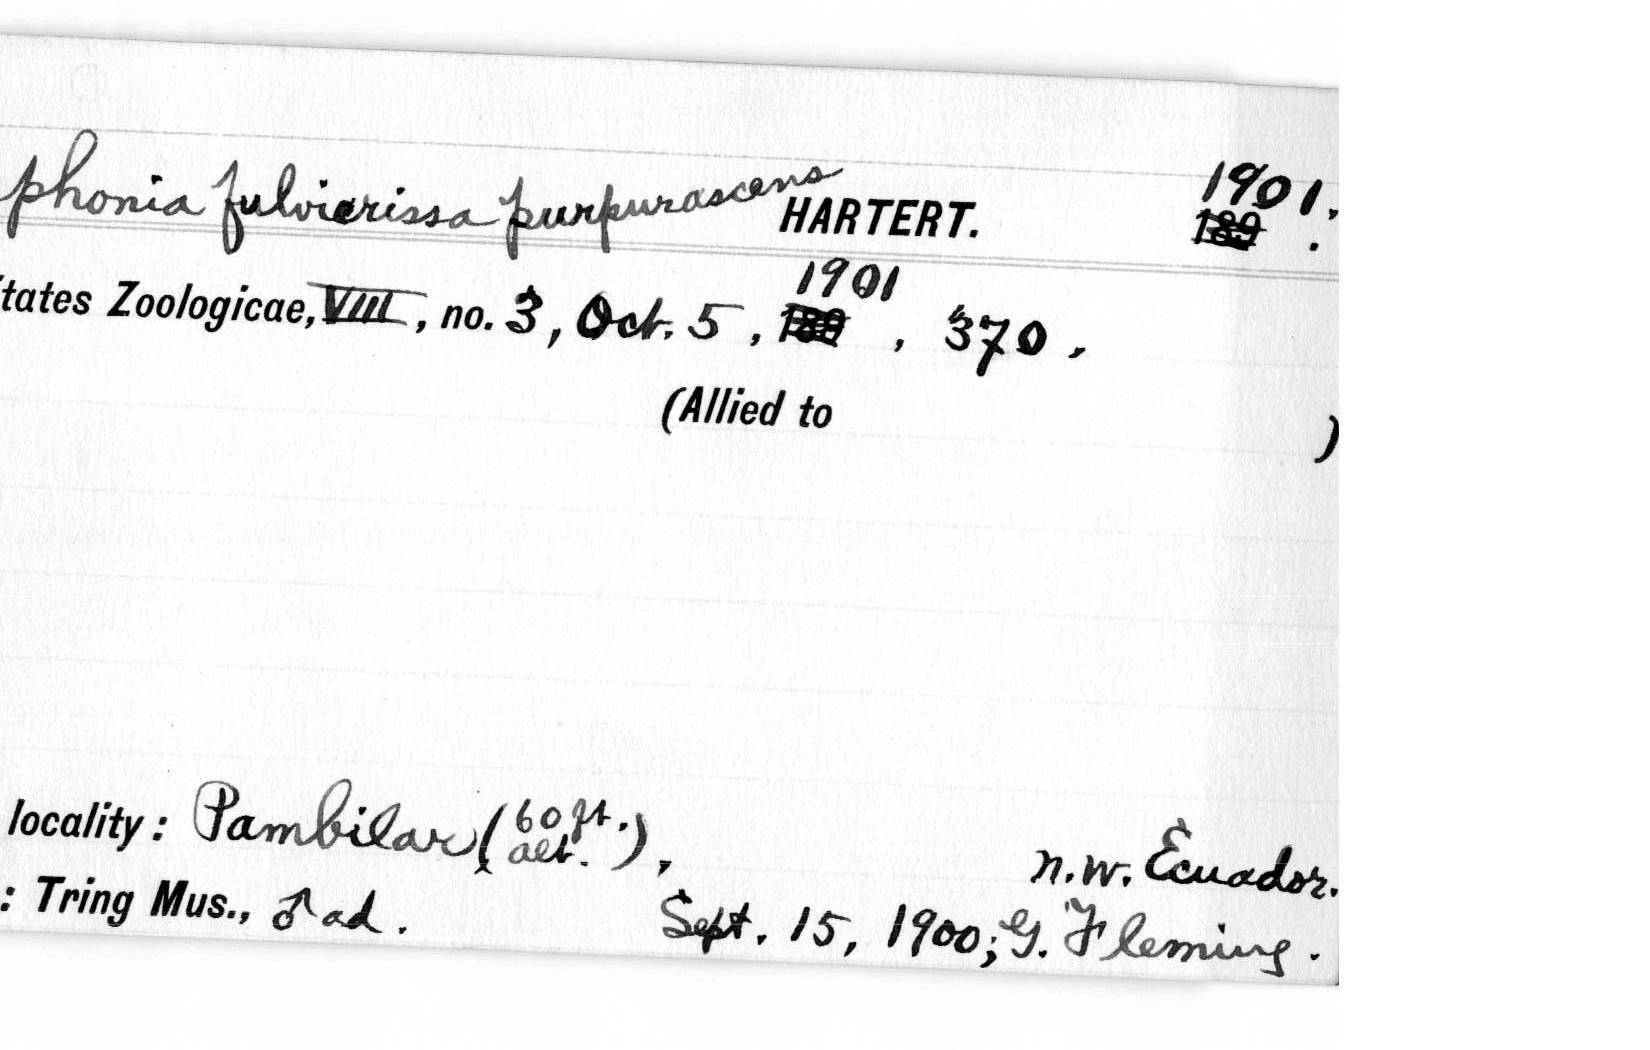 phonia fulvicrissa purpurascens HARTERT. 1901.
tates Zoologicae, VIII, no. 3, Oct. 5, 1901, 370.
(Allied to )
locality: Pambilar (60 ft. alt.), n.w. Ecuador.
: Tring Mus., ♂ ad. Sept. 15, 1900; G. Fleming.